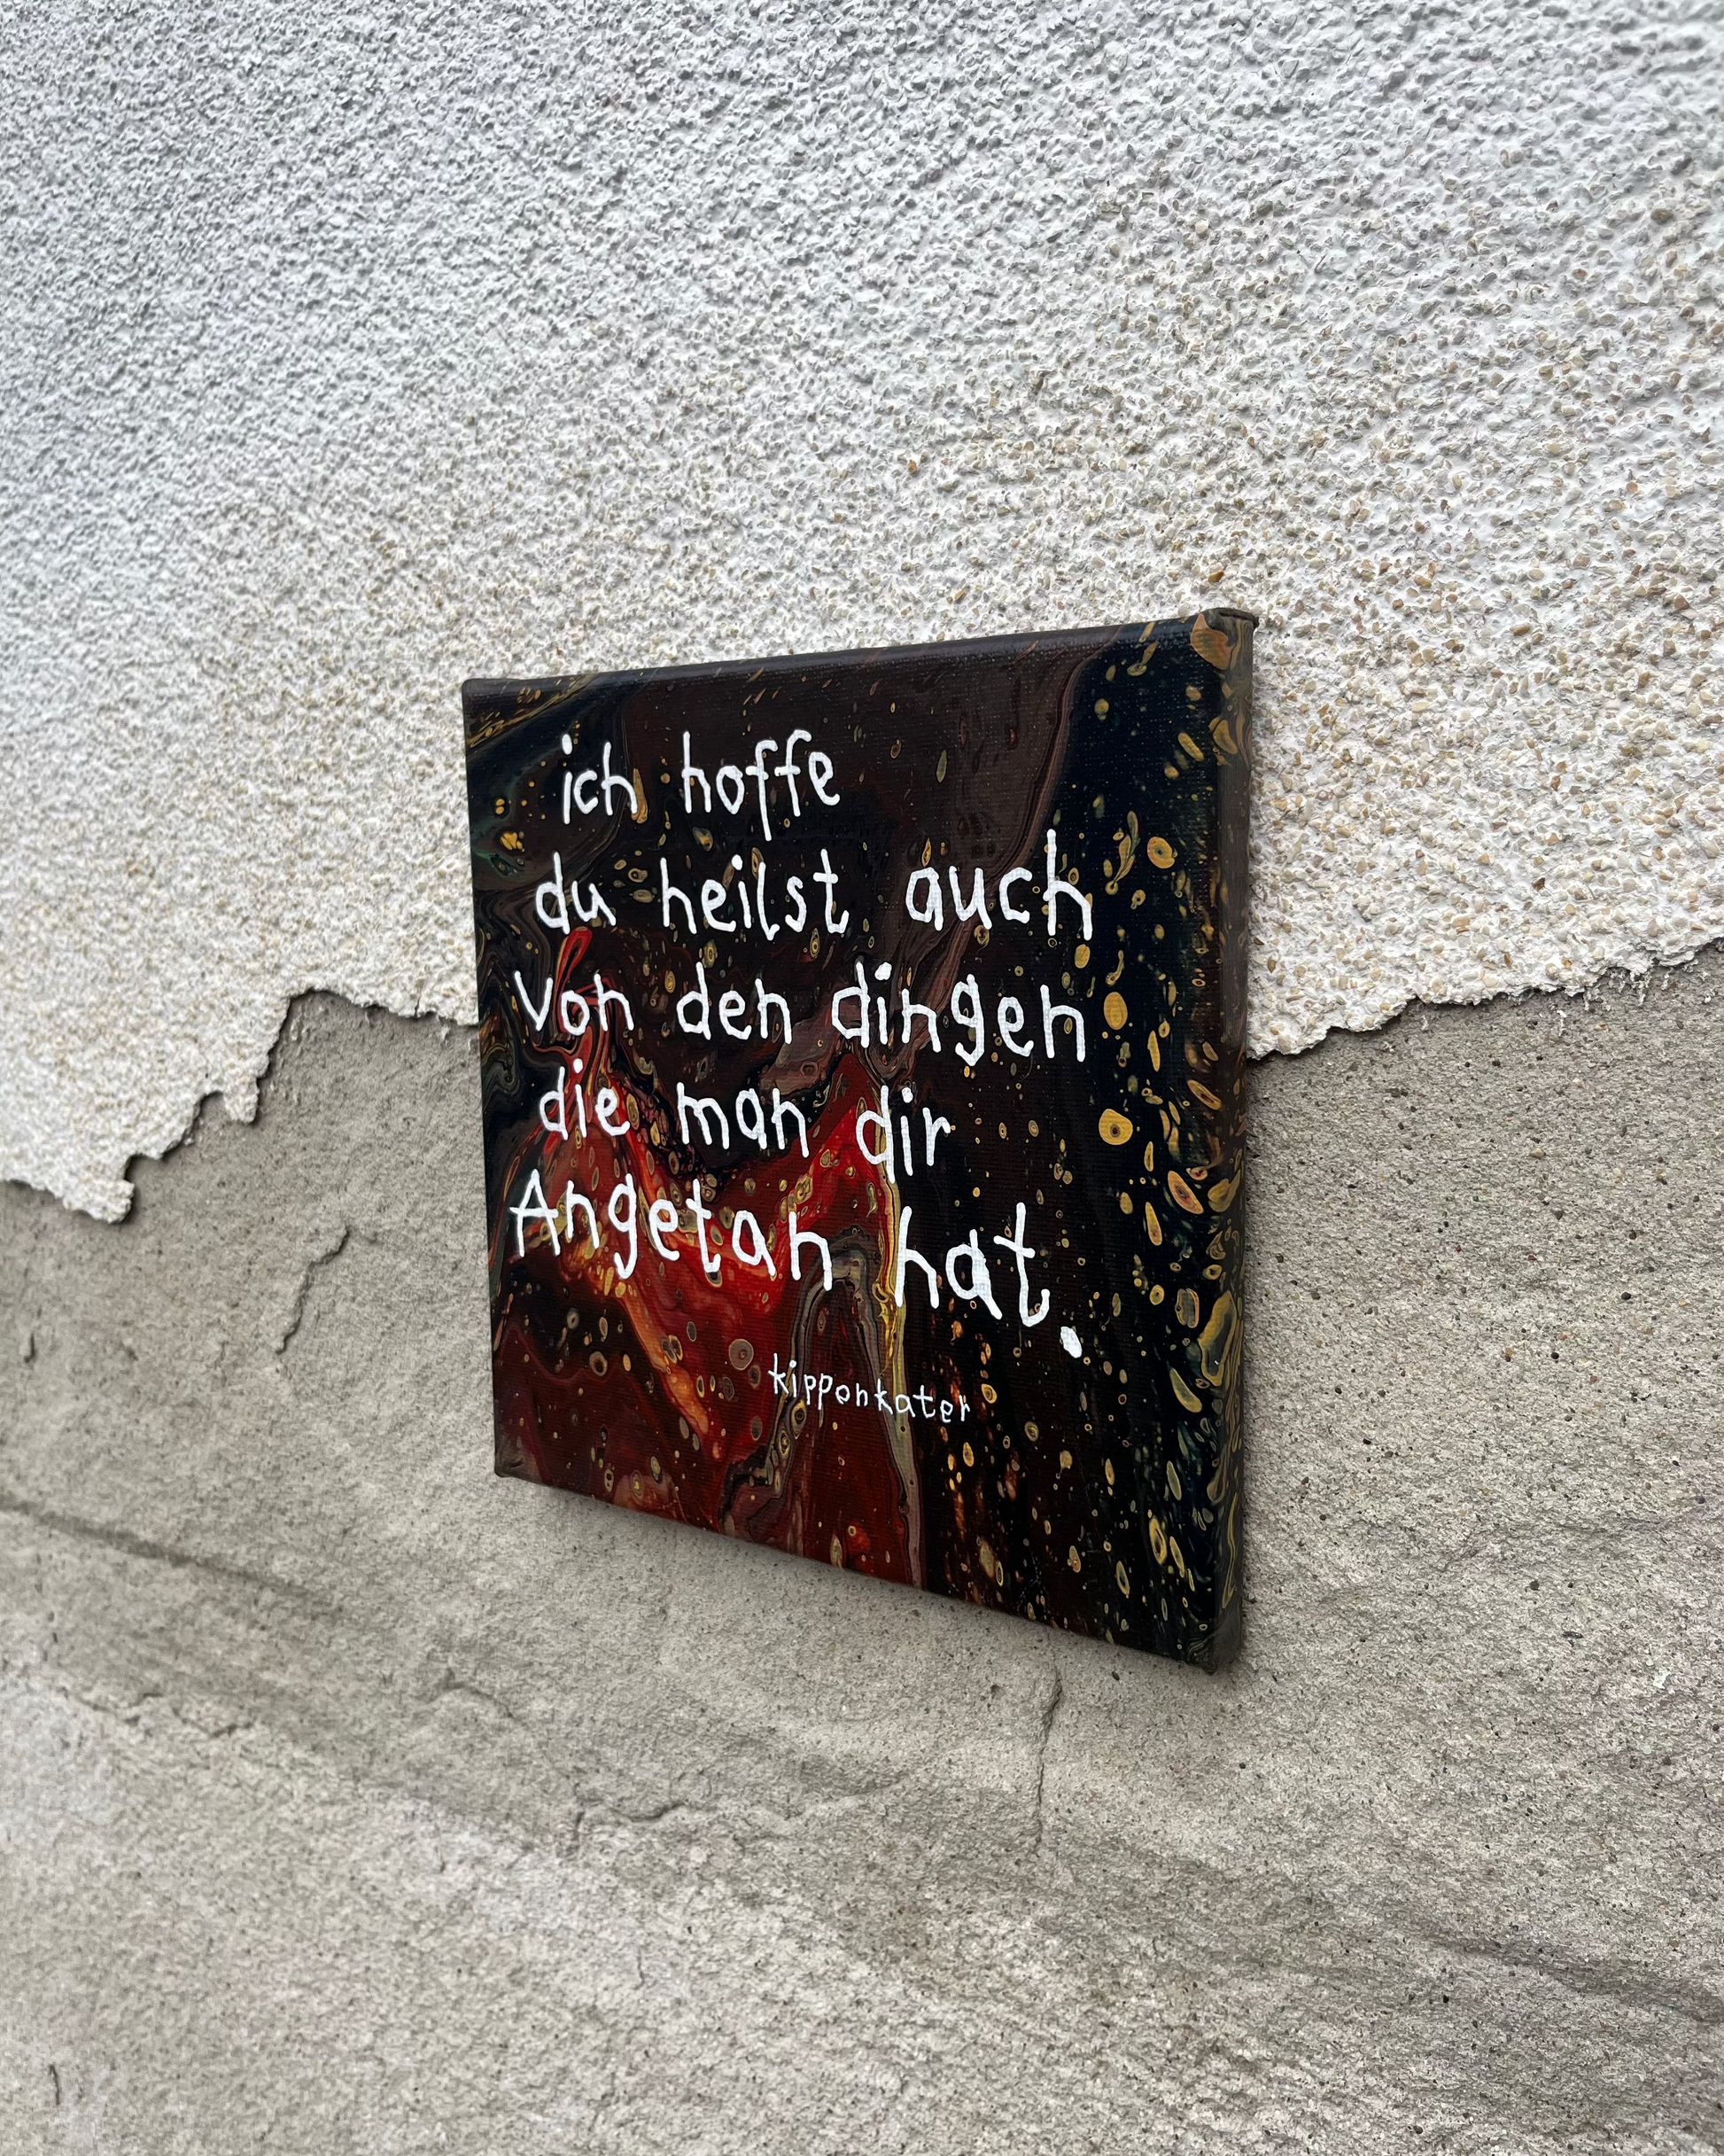 ich hoffe
du heilst auch
von den dingen
die man dir
Angetan hat.
kippenkater